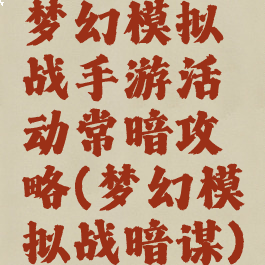 梦幻模拟
战手游活
动常暗攻
略(梦幻模
拟战暗谋)